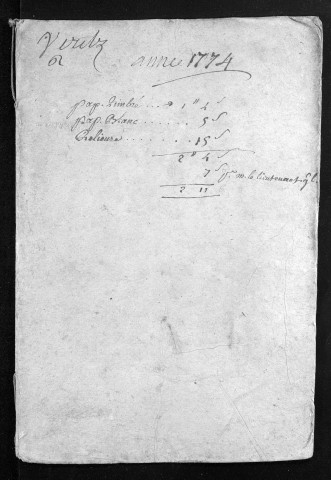 Veretz
année 1774
pap. timbré . . . 1 tt 4 s
pap. blanc . . . . . . 5 s
Reliure . . . . . . 15 s
2 tt 4 s
7 s pr. m. le lieutenant gl.
2 11